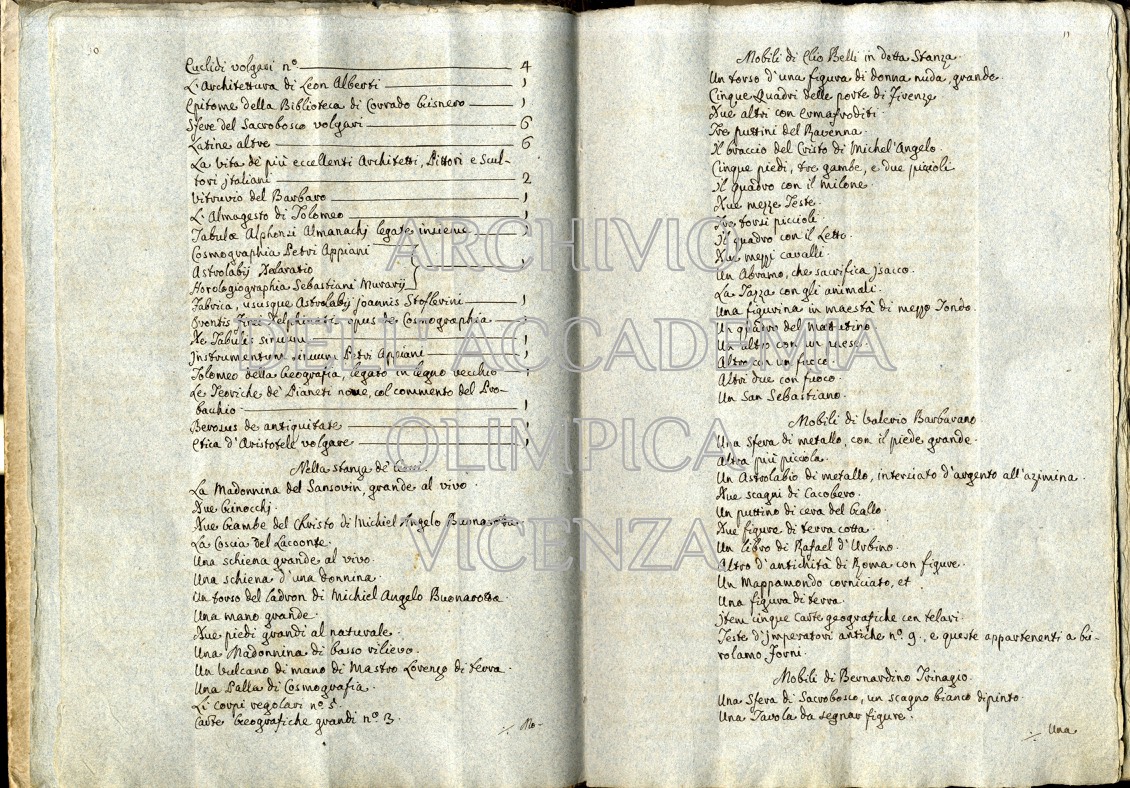 Euclidi volgari nº 4
L'Architettura di Leon Alberti 1
Epitome della Biblioteca di Corrado Gisnero 1
Sfere del Sacrobosco volgari 6
Latine altre 6
La vita de' più eccellenti Architetti, Pittori e Scul-
tori jtaliani 2
Vitruvio del Barbaro 1
L'Almagesto di Tolomeo 1
Tabulæ Alphonsi Almanachj legate insieme 1
Cosmographia Petri Appiani
Astrolabij Declaratio 1
Horologiographia Sebastiani Murarij
Fabrica, ususque Astrolabij Joannis Stoflerini 1
Orontis Finei Delphinatis opus de Cosmographia 1
De Tabulis sinuum 1
Instrumentum sinuum Petri Appiani 1
Tolomeo della Geografia, legato in legno vecchio 1
Le Teoriche de' Pianeti nove, col commento del Pro-
bachio 1
Berosus de antiquitate 1
Etica d'Aristotele volgare 1
Nella stanza de'
La Madonnina del Sansovin, grande al vivo.
Due Ginocchj.
Due Gambe del Christo di Michiel Angelo Buonarota.
La Coscia del Lacoonte.
Una schiena grande al vivo.
Una schiena d'una donnina.
Un torso del Ladron di Michiel Angelo Buonarota.
Una mano grande.
Due piedi grandi al naturale.
Una Madonnina di basso rilievo.
Un Vulcano di mano di Mastro Lorenzo di terra.
Una Palla di Cosmografia.
Li corpi regolari nº 5.
Carte Geografiche grandi nº 3.
11
Mobili di Elio Belli in detta Stanza.
Un torso d'una figura di donna nuda, grande.
Cinque Quadri delle porte di Firenze
Due altri con ermafroditi.
Tre puttini del Ravenna.
Il braccio del Cristo di Michel'Angelo.
Cinque piedi, tre gambe, e due piccioli
Il quadro con il Milone.
Due mezze Teste.
Tre torsi piccioli.
Il quadro con il Letto.
Due mezzi cavalli.
Un Abramo, che sacrifica Jsacco.
La Tazza con gli animali.
Una figurina in maestà di mezzo Tondo.
Un quadro del Matutino
Un altro con un mese.
Altro con un fuoco.
Altri due con fuoco.
Un San Sebastiano.
Mobili di Valerio Barbarano
Una Sfera di metallo, con il piede grande.
Altra più piccola.
Un Astrolabio di metallo, interciato d'argento all'azimina.
Due scagni di Cacobero.
Un puttino di cera del Gallo.
Due figure di terra cotta.
Un libro di Rafael d'Urbino
Altro d'antichità di Roma con figure.
Un Mappamondo corniciato, et
Una figura di terra.
Jtem cinque Carte geografiche con telari.
Teste d'Jmperatori antiche nº. 9., e queste appartenenti a Gi-
rolamo Forni.
Mobili di Bernardino Trinagio.
Una Sfera di Sacrobosco, un scagno bianco dipinto
Una Tavola da segnar figure.
Una
ARCHIVIO
DELL'ACCADEMIA
OLIMPICA
VICENZA